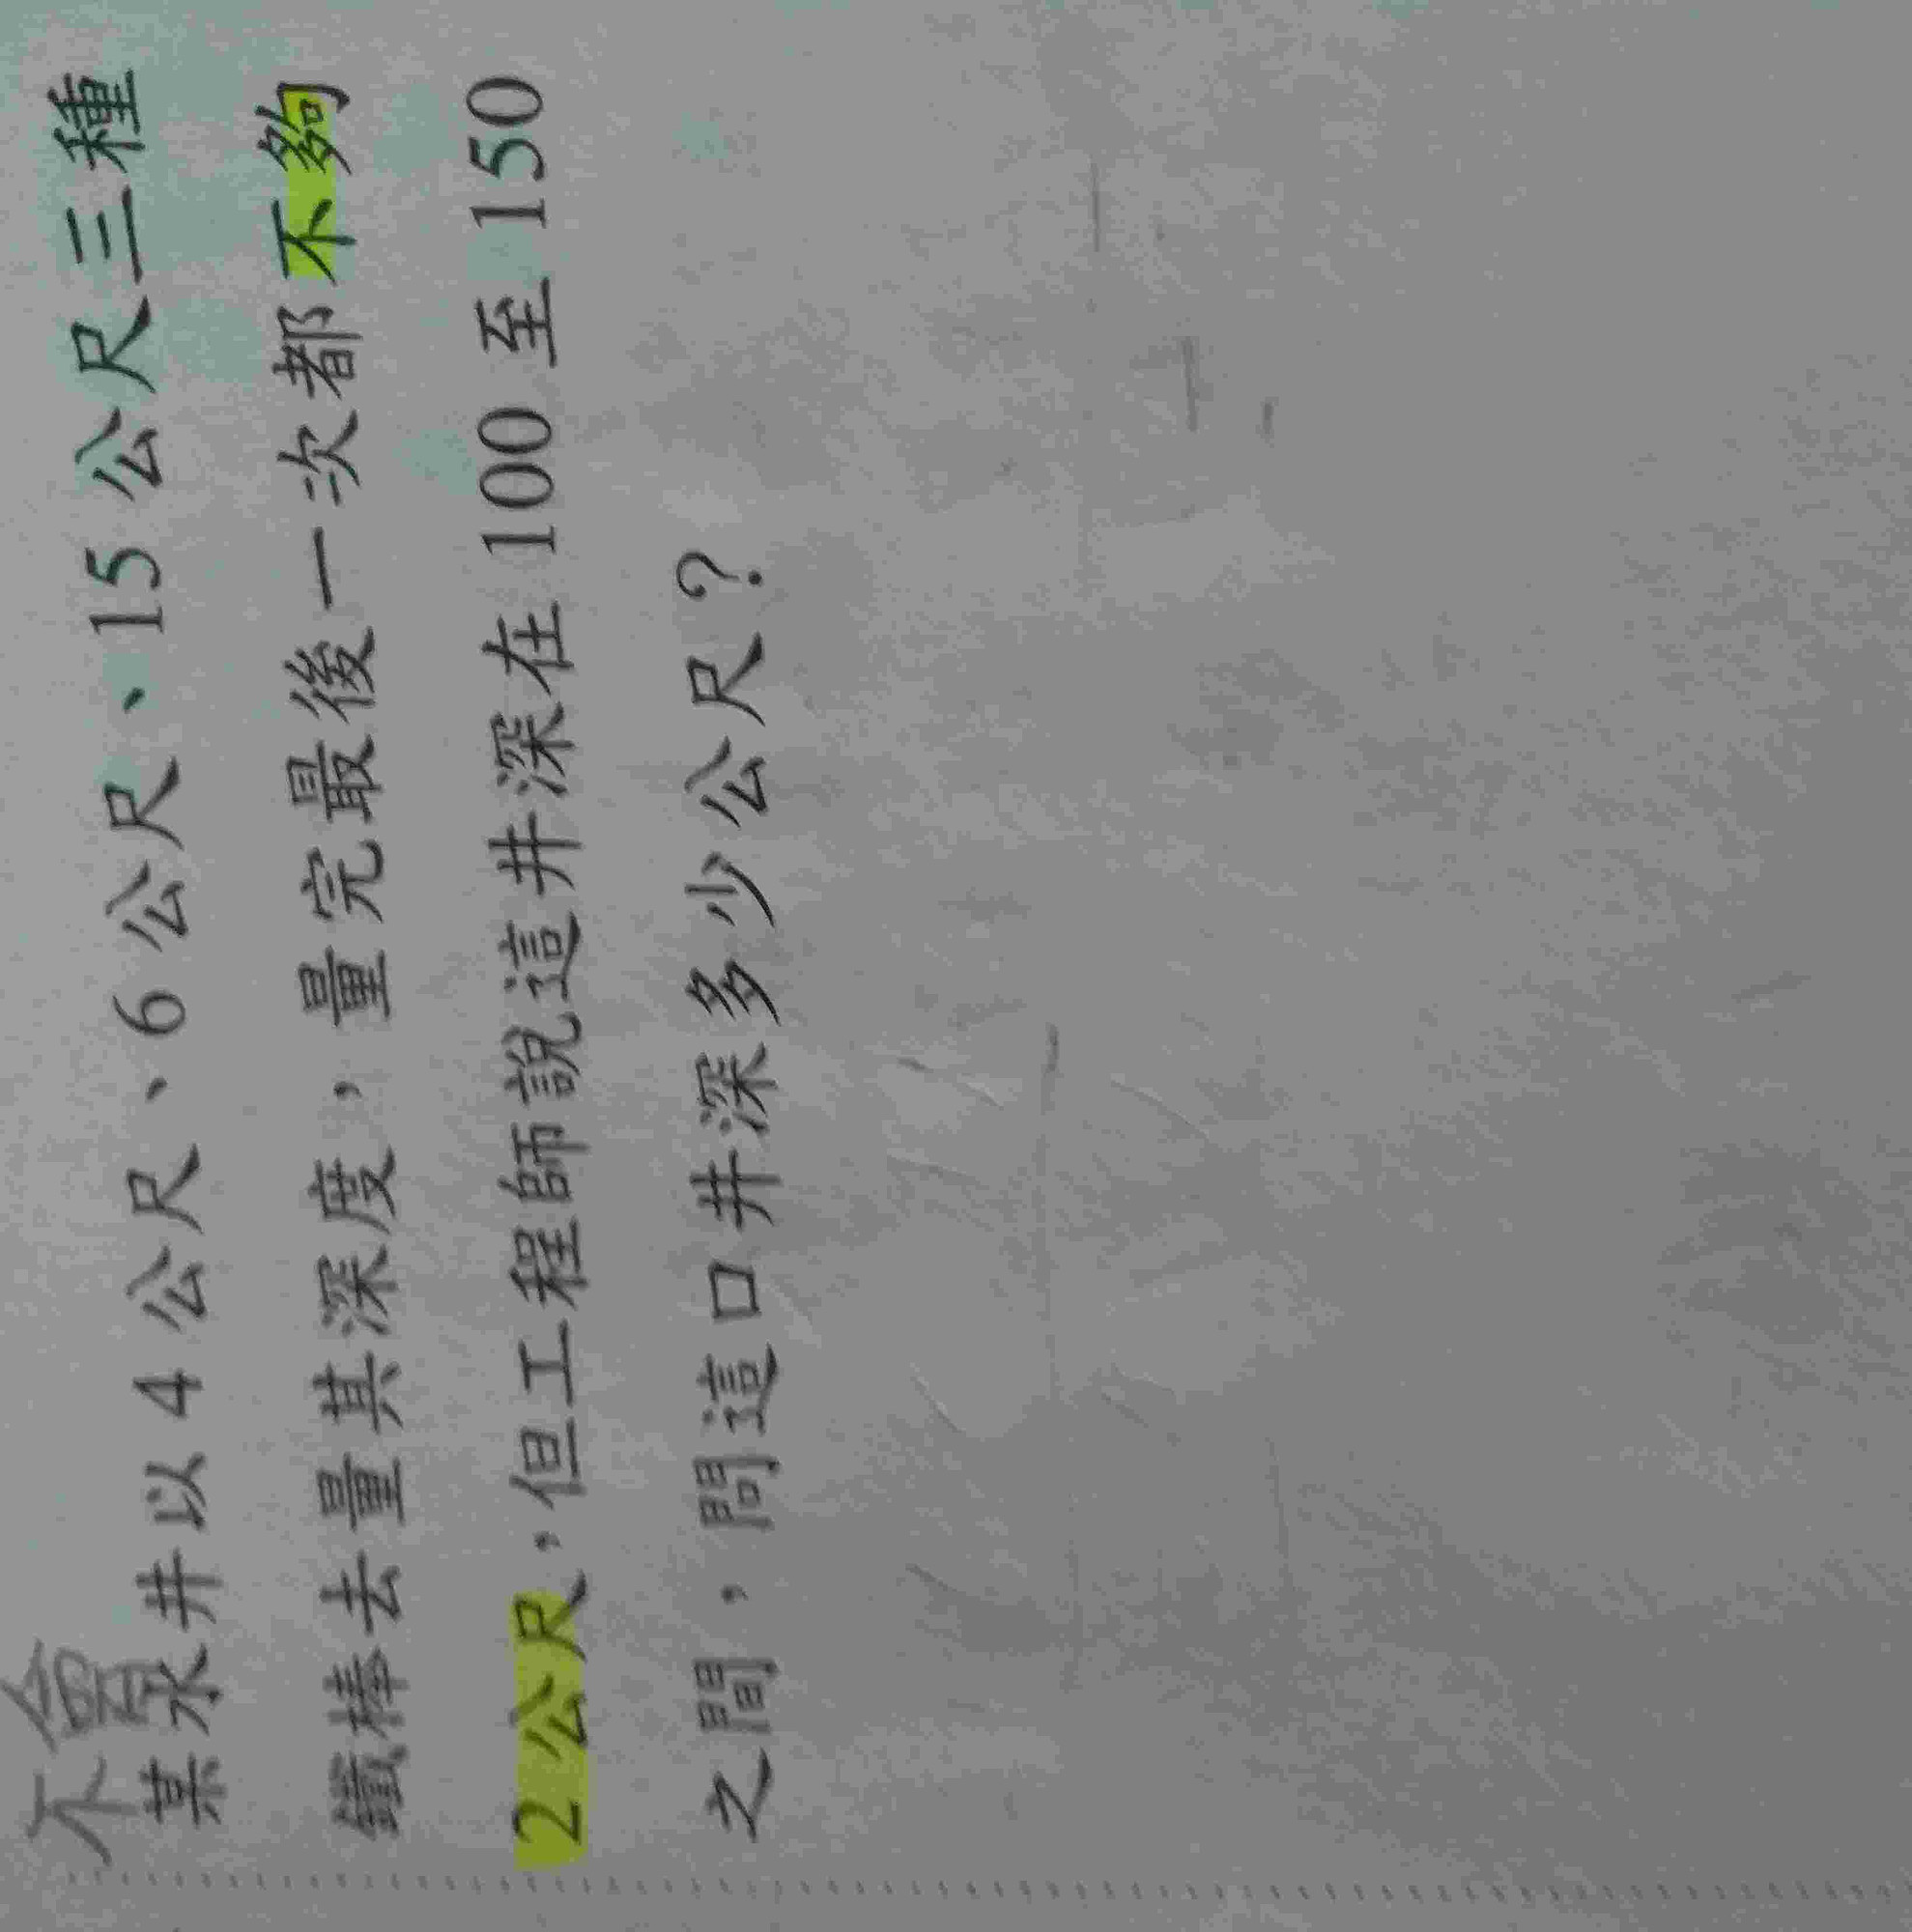 不會
某水井以 4 公尺、6 公尺、15 公尺三種
鐵棒去量其深度，量完最後一次都不夠
2 公尺，但工程師說這井深在 100 至 150
之間，問這口井深多少公尺？